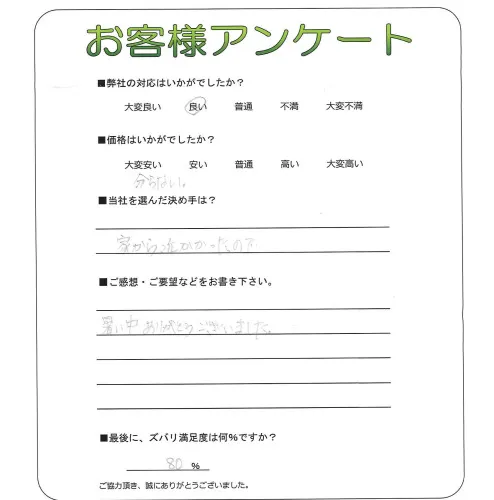 お客様アンケート
■弊社の対応はいかがでしたか？
大変良い 良い 普通 不満 大変不満
■価格はいかがでしたか？
大変安い 安い 普通 高い 大変高い
分らない。
■当社を選んだ決め手は？
家から近かかったので
■ご感想・ご要望などをお書き下さい。
暑い中ありがとうございました。
■最後に、ズバリ満足度は何%ですか？
80 %
ご協力頂き、誠にありがとうございました。